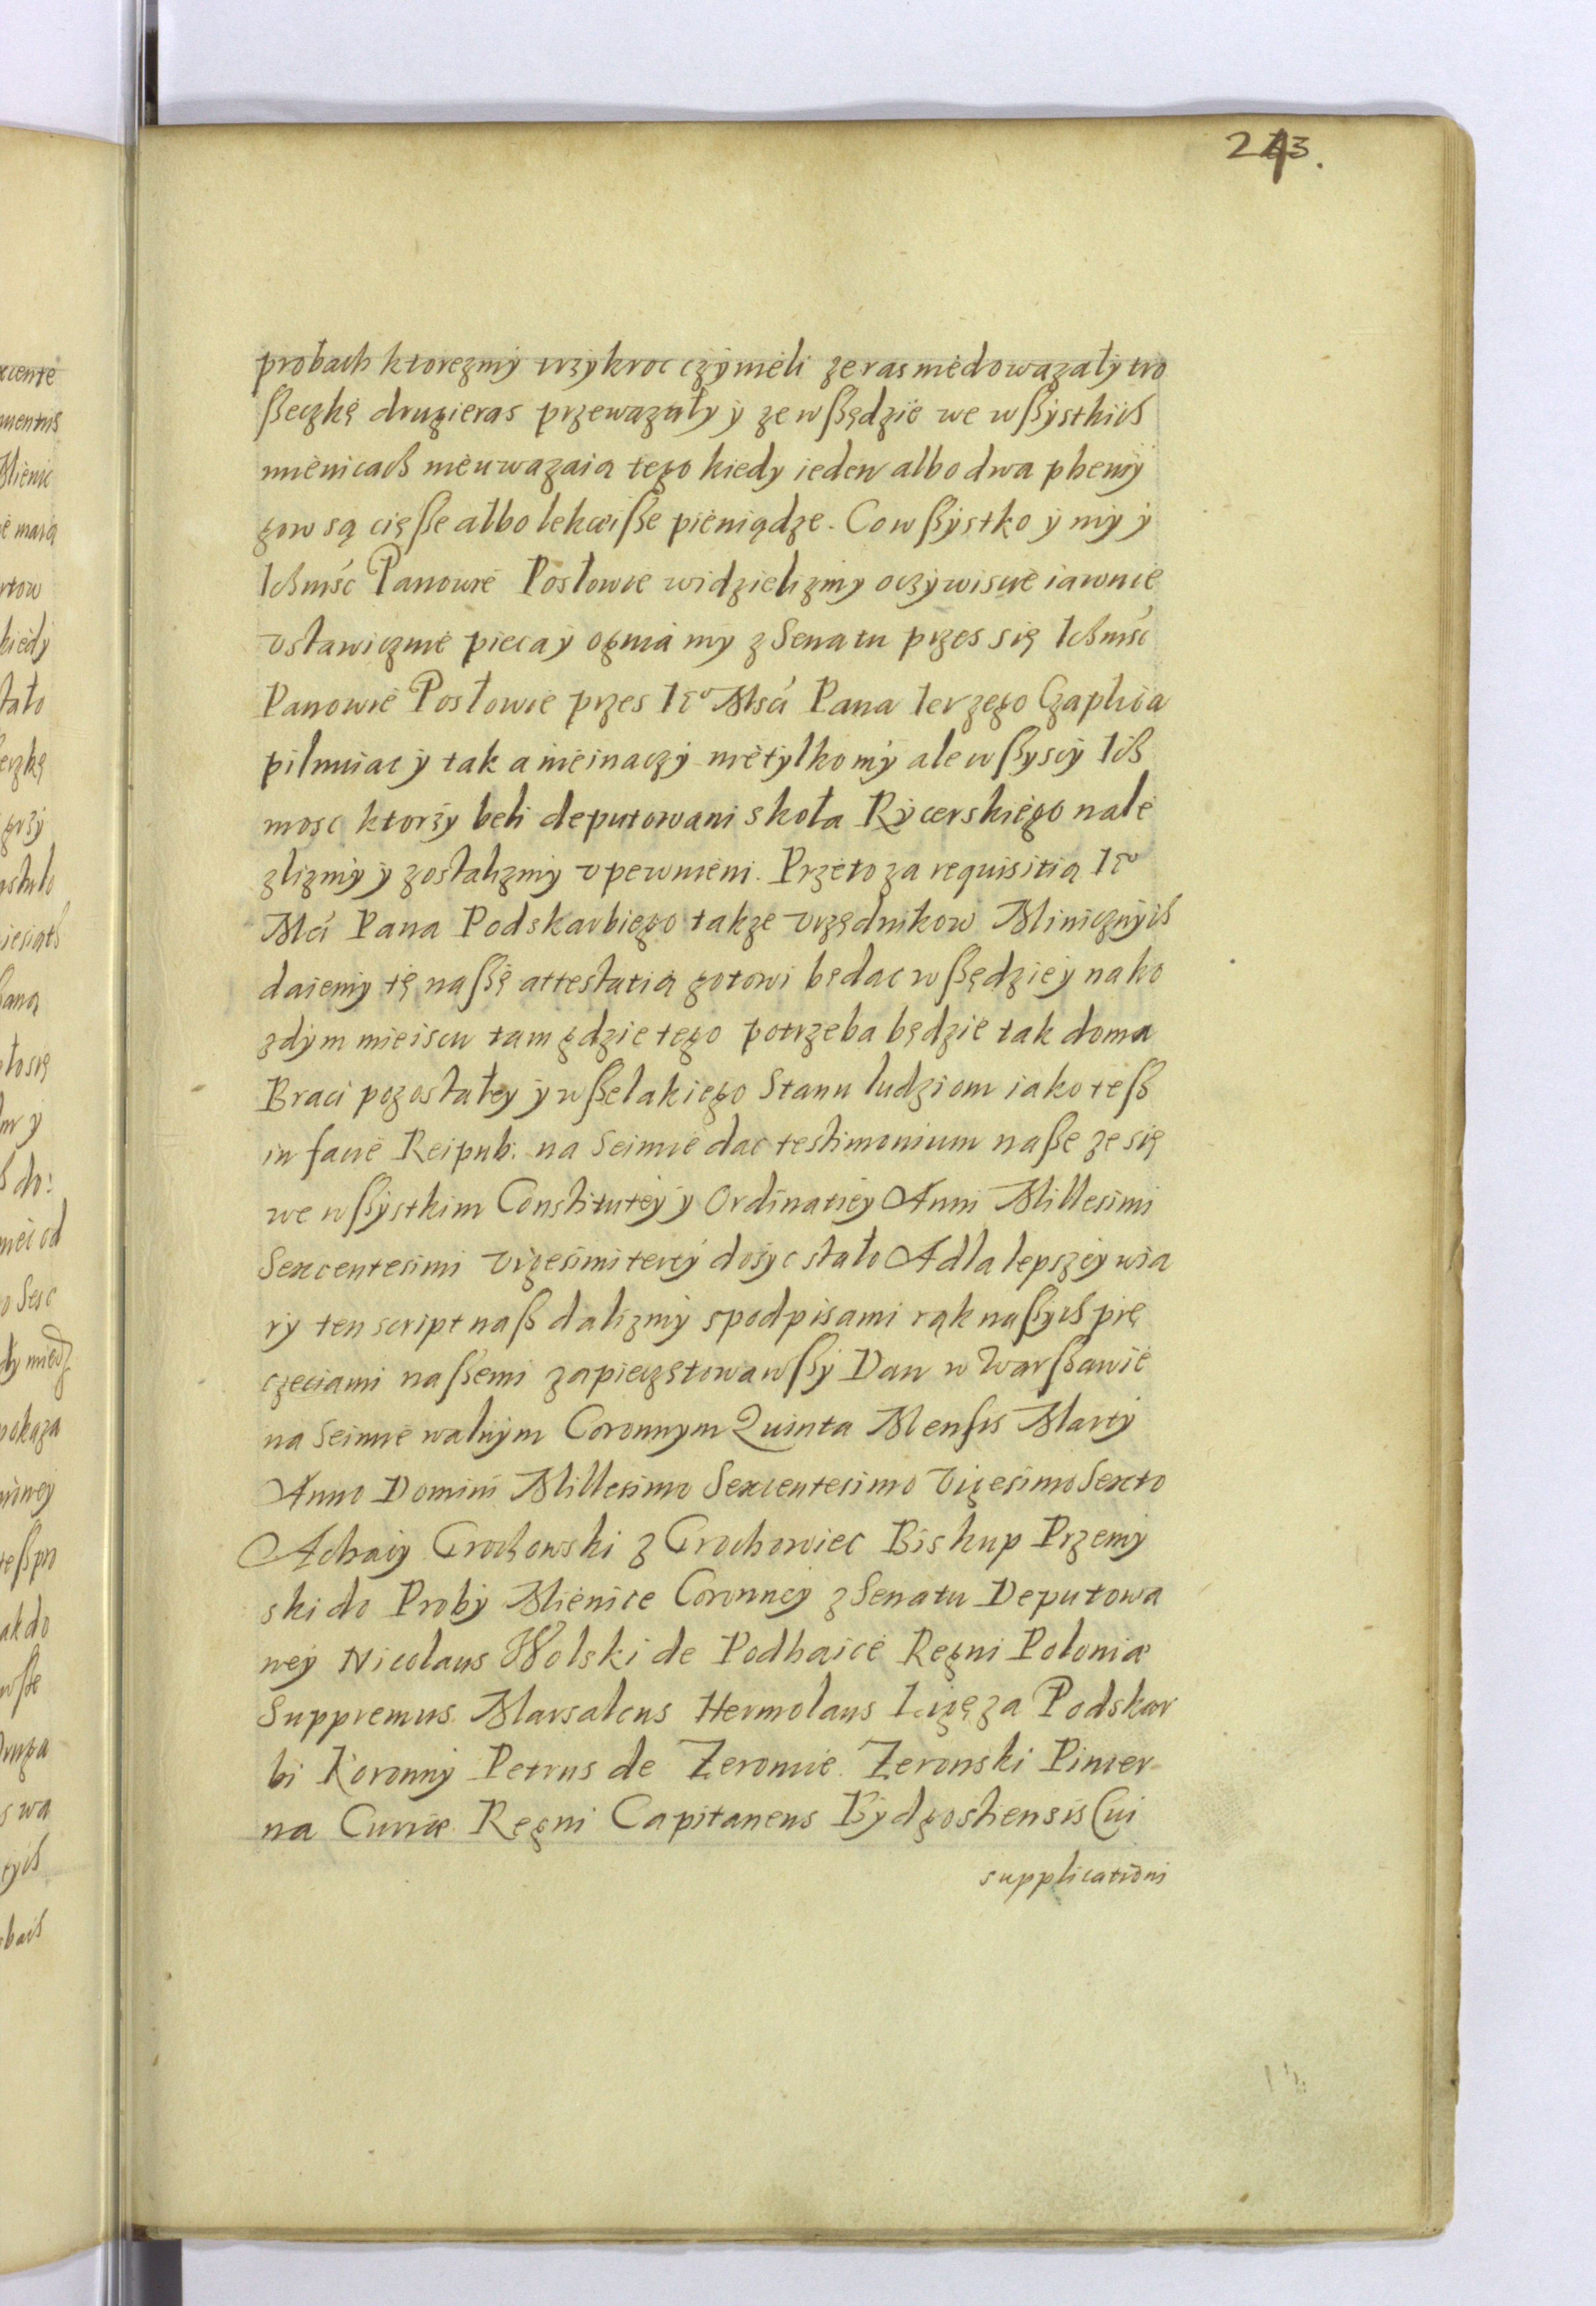 243.
probach ktorezmy trzykroc czynieli ze ras niedowazały tro
ßeczkę drugi eras przewazały ÿ ze wßędzie we wßystkich
mienicach nieuwazaia tego kiedy ieden albo dwa pheniÿ
gow są cięßse albo lekcieißse pieniądze. Co wßystko ÿ mÿ ÿ
Ichmśc Panowie Posłowie widzielizmy oczÿwiscie iawnie
vstawicznie pieca ÿ ognia mÿ z Senatu przes się Ichmśc
Panowie Posłowie przes Ie° Mści Pana Ierzego Czaplica
pilnuiac ÿ tak a nieinaczÿ nietÿlko mÿ ale wßyscÿ Ich
mosc ktorzÿ beli deputowani s koła Rÿcerskiego nale
zlizmÿ ÿ zostalizmÿ vpewnieni. Przeto za requisitią Ie°
Mci Pana Podskarbiego takze vrzędnikow Minicznÿch
daiemÿ tę naßę attestatią gotowi będac wßędzie ÿ na ko
zdÿm mieiscu tam gdzie tego potrzeba będzie tak doma
Braci pozostałeÿ ÿ wßelakiego Stanu ludziom iako teß
in facie Reipub. na Seimie dac testimonium naße ze się
we wßystkim Constitutieÿ ÿ Ordinatieÿ Anni Millesimi
Sexcentesimi Vigesimi tertÿ dosÿc stało A dla lepszeÿ wia
rÿ ten script naß dalizmÿ s podpisami rąk naßÿch pie
częciami naßemi zapieczętowawßÿ Dan w Warßawie
na Seimie walnÿm Coronnym Quinta Mensis Martÿ
Anno Domini Millesimo Sexcentesimo Vigesimo Sexto
Achacÿ Grochowski z Grochowiec Biskup Przemÿ
ski do Probÿ Mienice Coronneÿ z Senatu Deputowa
nÿ Nicolaus Wolski de Podhaice Regni Poloniæ
Suppremus Marsalcus Hermolaus Ligęza Podskar
bi Koronnÿ Petrus de Zeromie Zeronski Pincer
na Curiæ Regni Capitaneus Bÿdgostiensis Cui
supplicationi